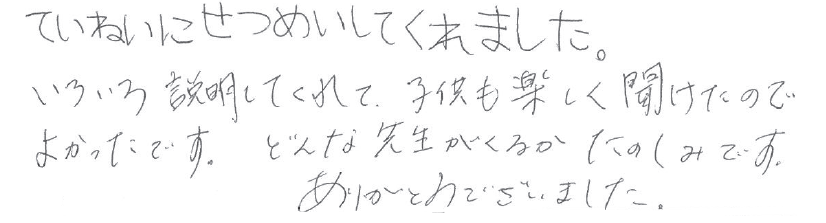 ていねいにせつめいしてくれました。
いろいろ説明してくれて、子供も楽しく聞けたので
よかったです。 どんな先生がくるか たのしみです。
ありがとうございました。